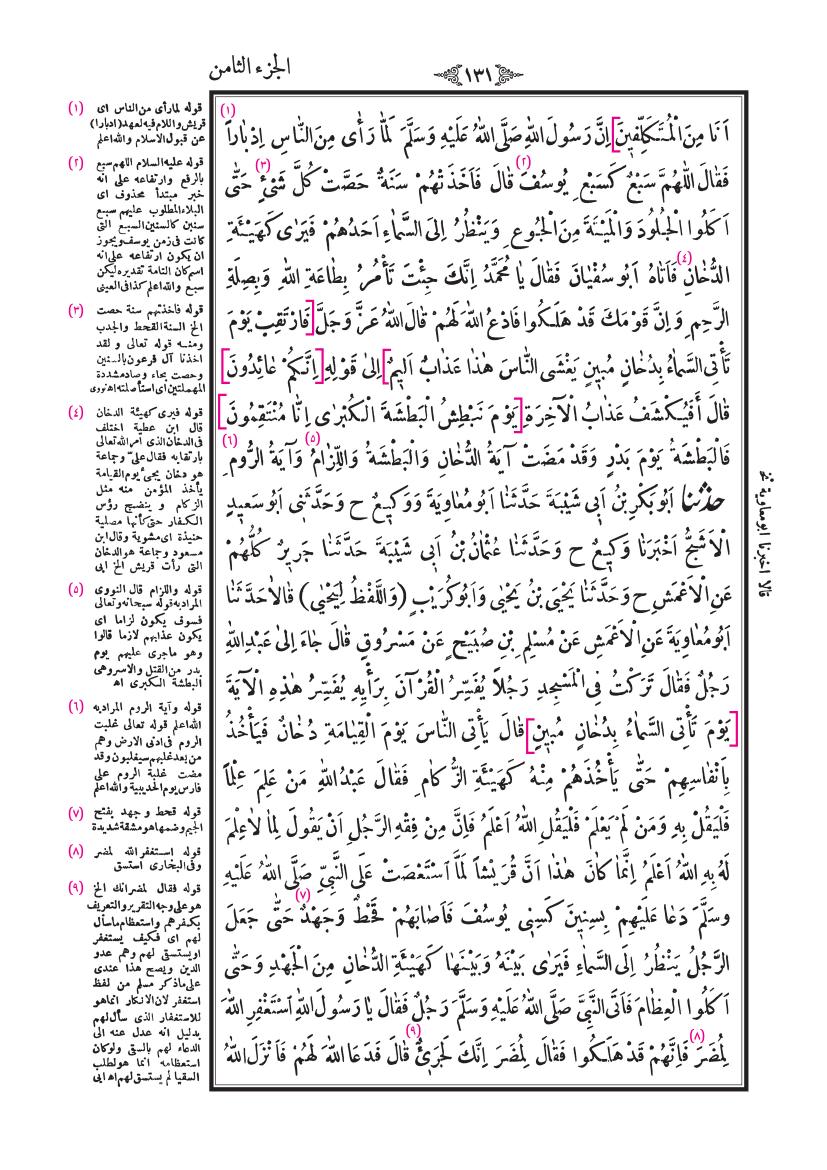 الجزء الثامن
١٣١
اَنَا مِنَ الْمُتَكَلِّفينَ] اِنَّ رَسُولَ اللهِ صَلَّى اللهُ عَلَيْهِ وَسَلَّمَ لَمَّا رَأٰى مِنَ النَّاسِ اِدْبَاراً (١)
فَقَالَ اللّٰهُمَّ سَبْعٌ كَسَبْعِ يُوسُفَ (٢) قَالَ فَاَخَذَتْهُمْ سَنَةٌ (٣) حَصَّتْ كُلَّ شَىْءٍ حَتّٰى
اَكَلُوا الْجُلُودَ وَالْمَيْتَةَ مِنَ الْجُوعِ وَيَنْظُرُ اِلَى السَّمَاءِ اَحَدُهُمْ فَيَرٰى كَهَيْئَةِ
الدُّخَانِ (٤) فَاَتَاهُ اَبُو سُفْيَانَ فَقَالَ يَا مُحَمَّدُ اِنَّكَ جِئْتَ تَأْمُرُ بِطَاعَةِ اللهِ وَبِصِلَةِ
الرَّحِمِ وَاِنَّ قَوْمَكَ قَدْ هَلَكُوا فَادْعُ اللهَ لَهُمْ قَالَ اللهُ عَزَّ وَجَلَّ [فَارْتَقِبْ يَوْمَ
تَأْتِى السَّمَاءُ بِدُخَانٍ مُبينٍ يَغْشَى النَّاسَ هٰذَا عَذَابٌ اَليمٌ] اِلىٰ قَوْلِهِ [اِنَّكُمْ عَائِدُونَ]
قَالَ أَفَيُكْشَفُ عَذَابُ الْآخِرَةِ [يَوْمَ نَبْطِشُ الْبَطْشَةَ الْكُبْرٰى اِنَّا مُنْتَقِمُونَ]
فَالْبَطْشَةُ يَوْمَ بَدْرٍ وَقَدْ مَضَتْ آيَةُ الدُّخَانِ وَالْبَطْشَةُ وَاللِّزَامُ (٥) وَآيَةُ الرُّومِ (٦)
حَدَّثَنَا اَبُو بَكْرِ بْنُ اَبى شَيْبَةَ حَدَّثَنَا اَبُو مُعَاوِيَةَ وَوَكيعٌ ح وَحَدَّثَنى اَبُو سَعيدٍ
الْاَشَجُّ اَخْبَرَنَا وَكيعٌ ح وَحَدَّثَنَا عُثْمَانُ بْنُ اَبى شَيْبَةَ حَدَّثَنَا جَريرٌ كُلُّهُمْ
عَنِ الْاَعْمَشِ ح وَحَدَّثَنَا يَحْيَى بْنُ يَحْيٰى وَاَبُو كُرَيْبٍ (وَاللَّفْظُ لِيَحْيٰى) قَالَا حَدَّثَنَا
اَبُو مُعَاوِيَةَ عَنِ الْاَعْمَشِ عَنْ مُسْلِمِ بْنِ صُبَيْحٍ عَنْ مَسْرُوقٍ قَالَ جَاءَ اِلىٰ عَبْدِ اللهِ
رَجُلٌ فَقَالَ تَرَكْتُ فِى الْمَسْجِدِ رَجُلاً يُفَسِّرُ الْقُرْآنَ بِرَأْيِهِ يُفَسِّرُ هٰذِهِ الْآيَةَ
[يَوْمَ تَأْتِى السَّمَاءُ بِدُخَانٍ مُبينٍ] قَالَ يَأْتِى النَّاسَ يَوْمَ الْقِيَامَةِ دُخَانٌ فَيَأْخُذُ
بِاَنْفَاسِهِمْ حَتّٰى يَأْخُذَهُمْ مِنْهُ كَهَيْئَةِ الزُّكَامِ فَقَالَ عَبْدُ اللهِ مَنْ عَلِمَ عِلْماً
فَلْيَقُلْ بِهِ وَمَنْ لَمْ يَعْلَمْ فَلْيَقُلِ اللهُ اَعْلَمُ فَاِنَّ مِنْ فِقْهِ الرَّجُلِ اَنْ يَقُولَ لِمَا لَا عِلْمَ
لَهُ بِهِ اللهُ اَعْلَمُ اِنَّمَا كَانَ هٰذَا اَنَّ قُرَيْشاً لَمَّا اسْتَعْصَتْ عَلَى النَّبِىِّ صَلَّى اللهُ عَلَيْهِ
وَسَلَّمَ دَعَا عَلَيْهِمْ بِسِنينَ كَسِنِى يُوسُفَ فَاَصَابَهُمْ قَحْطٌ وَجَهْدٌ (٧) حَتّٰى جَعَلَ
الرَّجُلُ يَنْظُرُ اِلَى السَّمَاءِ فَيَرٰى بَيْنَهُ وَبَيْنَهَا كَهَيْئَةِ الدُّخَانِ مِنَ الْجَهْدِ وَحَتّٰى
اَكَلُوا الْعِظَامَ فَاَتَى النَّبِىَّ صَلَّى اللهُ عَلَيْهِ وَسَلَّمَ رَجُلٌ فَقَالَ يَا رَسُولَ اللهِ اسْتَغْفِرِ اللهَ
لِمُضَرَ (٨) فَاِنَّهُمْ قَدْ هَلَكُوا فَقَالَ لِمُضَرَ اِنَّكَ لَجَرِىءٌ (٩) قَالَ فَدَعَا اللهَ لَهُمْ فَاَنْزَلَ اللهُ
قالا اخبرنا ابو معاوية نخ
(١) قوله لما رأى من الناس اى
قريش واللام فيه لعهد (ادبارا)
عن قبول الاسلام والله اعلم
(٢) قوله عليه السلام اللهم سبع
بالرفع وارتفاعه على انه
خبر مبتدأ محذوف اى
البلاء المطلوب عليهم سبع
سنين كالسنين السبع التى
كانت فى زمن يوسف ويجوز
ان يكون ارتفاعه على انه
اسم كان التامة تقديره ليكن
سبع والله اعلم كذا فى العينى
(٣) قوله فاخذتهم سنة حصت
الخ السنة القحط والجدب
ومنه قوله تعالى ولقد
اخذنا آل فرعون بالسنين
وحصت بحاء وصاد مشددة
المهملتين اى استأصلته اه نووى
(٤) قوله فيرى كهيئة الدخان
قال ابن عطية اختلف
فى الدخان الذى امر الله تعالى
بارتقابه فقال علىّ وجماعة
هو دخان يجىء يوم القيامة
يأخذ المؤمن منه مثل
الزكام وينضج رؤس
الكفار حتى كأنها مصلية
حنيذة اى مشوية وقال ابن
مسعود وجماعة هو الدخان
التى رأت قريش الخ ابى
(٥) قوله واللزام قال النووى
المراد به قوله سبحانه وتعالى
فسوف يكون لزاما اى
يكون عذابهم لازما قالوا
وهو ماجرى عليهم يوم
بدر من القتل والاسر وهى
البطشة الكبرى اه
(٦) قوله وآية الروم المراد به
الله اعلم قوله تعالى غلبت
الروم فى ادنى الارض وهم
من بعد غلبهم سيغلبون وقد
مضت غلبة الروم على
فارس يوم الحديبية والله اعلم
(٧) قوله قحط وجهد بفتح
الجيم وضمها هو مشقة شديدة
(٨) قوله استغفر الله لمضر
وفى البخارى استسق
(٩) قوله فقال لمضر انك الخ
هو على وجه التقرير والتعريف
بكفرهم واستعظام ما سأل
لهم اى فكيف يستغفر
او يستسقى لهم وهم عدو
الدين ويصح هذا عندى
على ما ذكر مسلم من لفظ
استغفر لان الانكار انما هو
للاستغفار الذى سأل لهم
بدليل انه عدل عنه الى
الدعاء لهم بالسقى ولو كان
استعظامه انما هو لطلب
السقيا لم يستسق لهم اه ابى